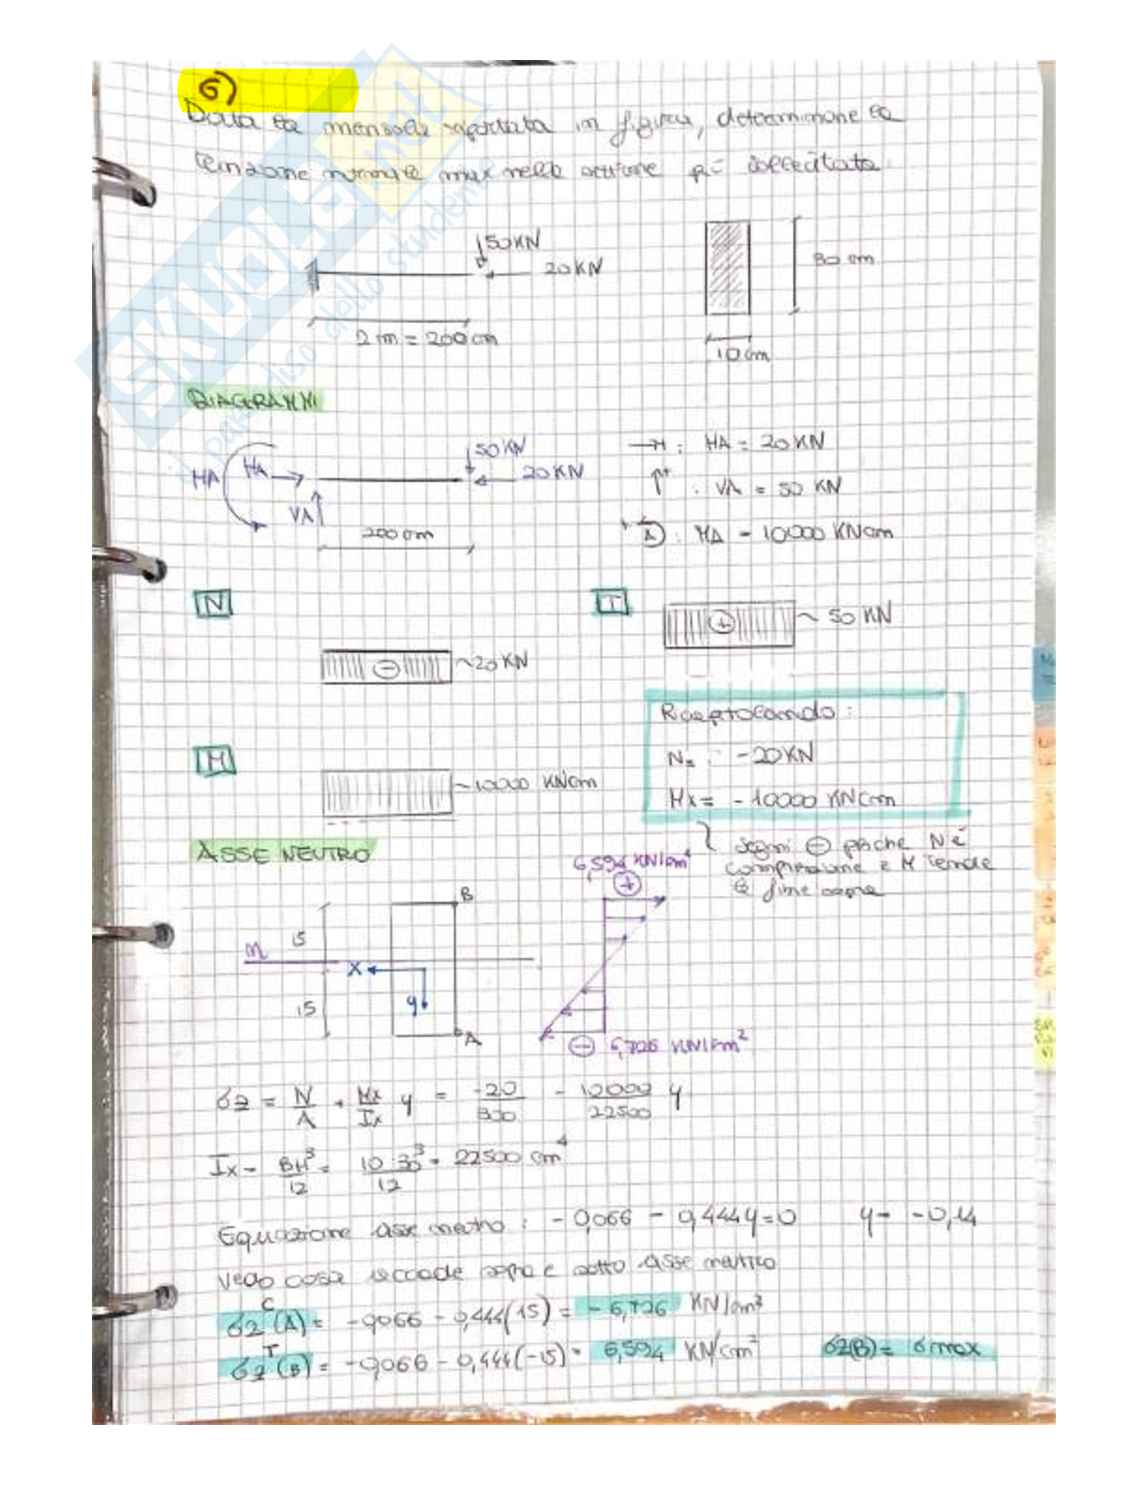 6)
Data la mensola riportata in figura, determinare la
tensione normale max nella sezione più sollecitata
50KN
20KN
2m = 200cm
30 cm
10cm
DIAGRAMMI
MA
HA
VA
50KN
20KN
200cm
→+ : HA = 20KN
↑+ : VA = 50 KN
A : MA = 10000 KNcm
N
20KN
T
+
50 KN
-
M
10000 KNcm
Riepilogando:
Nz = -20KN
Mx = -10000 KNcm
segni ⊖ perché N è
compressione e M tende
le fibre sopra
ASSE NEUTRO
6,594 KN/cm²
+
B
n
15
x
y
15
A
- 6,726 KN/cm²
σz = N/A + Mx/Ix y = -20/300 - 10000/22500 y
Ix = BH³/12 = 10·30³/12 = 22500 cm⁴
Equazione asse neutro : -0,066 - 0,444y=0 y= -0,14
Vedo cosa succede sopra e sotto asse neutro
σz^C(A) = -0,066 - 0,444(15) = -6,726 KN/cm²
σz^T(B) = -0,066 - 0,444(-15) = 6,594 KN/cm² σz(B) = σmax
SKUOLA.net
paradiso dello studente